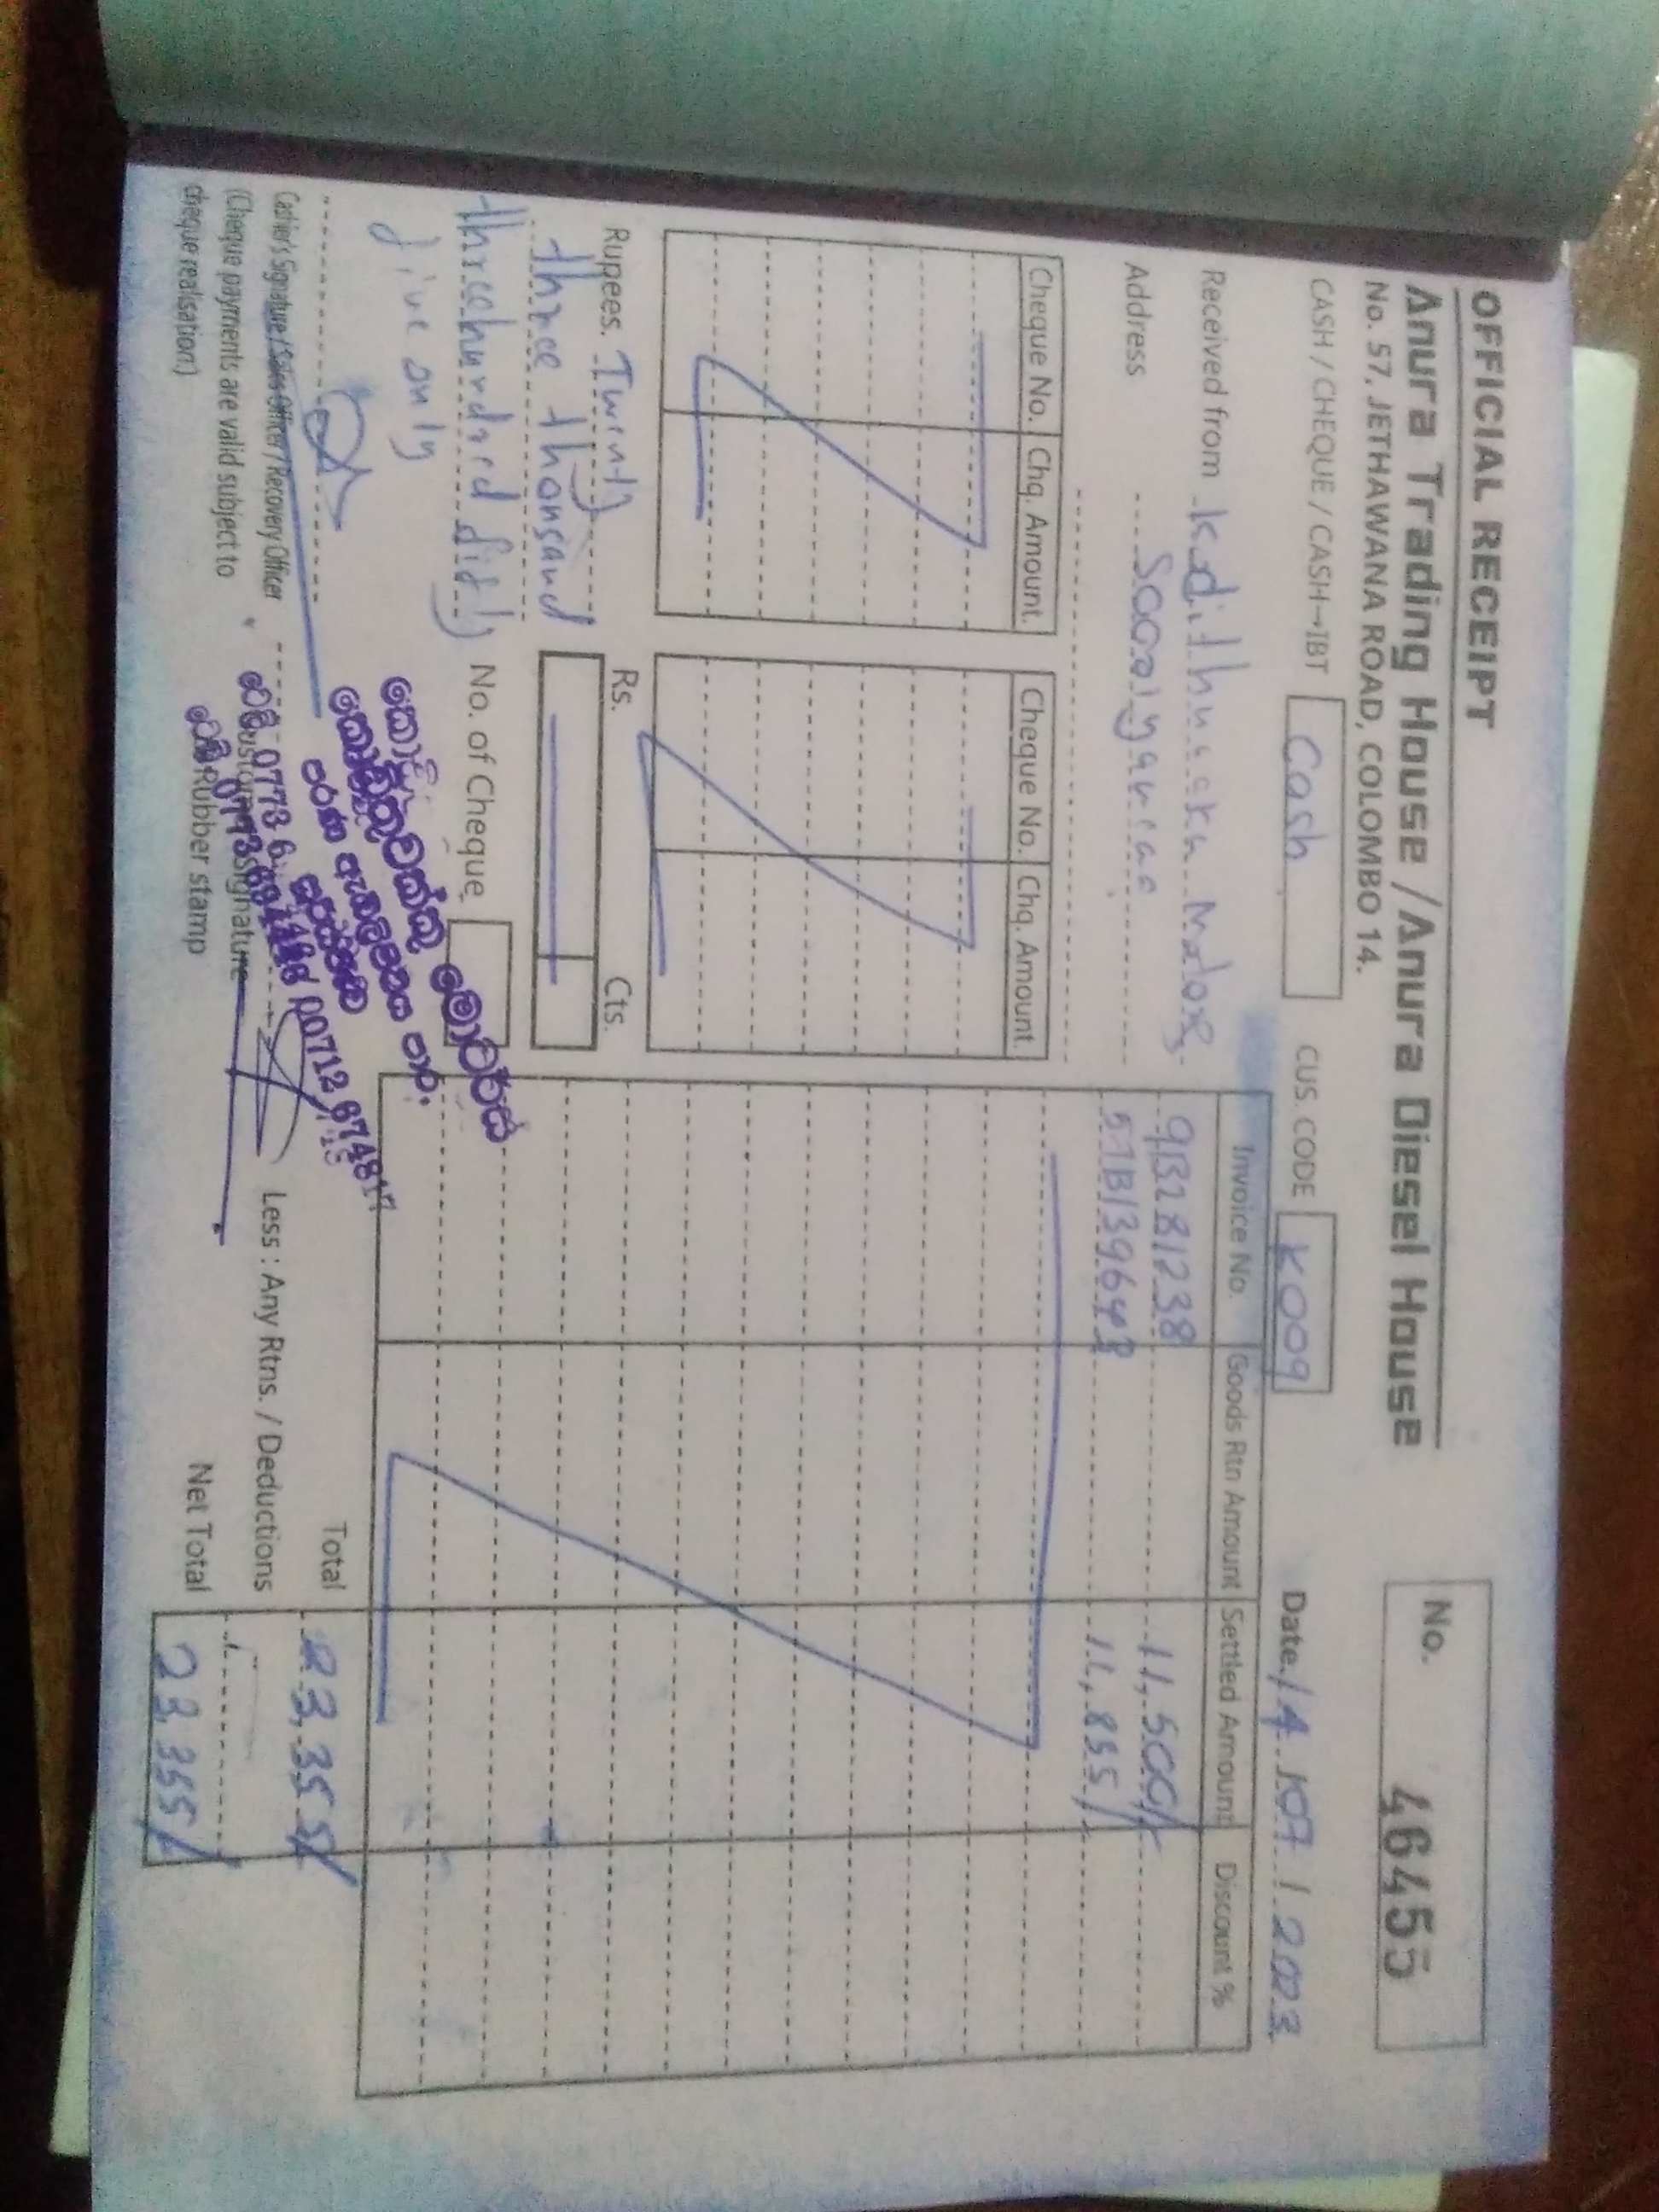 OFFICIAL RECEIPT
Anura Trading House / Anura Diesel House
No. 57, JETHAWANA ROAD, COLOMBO 14.
No. 46455
CASH / CHEQUE / CASH→IBT Cash
CUS. CODE K009
Date 14 / 07 / 2023
Received from Kadithuwaku Motors
Address
Cheque No. Chq. Amount
Cheque No. Chq. Amount
Invoice No. Goods Rtn Amount Settled Amount Discount %
9B281238 11,500/
57B139643 11,855/
Rupees. Twenty
three thousand
threehundred fifty
five only
Rs. Cts.
No. of Cheque
Cashier's Signature / Sales Officer / Recovery Officer
(Cheque payments are valid subject to
cheque realisation)
මෝටර්ස්
Customer Signature
Rubber stamp
Total 23,355/
Less : Any Rtns. / Deductions
Net Total 23,355/